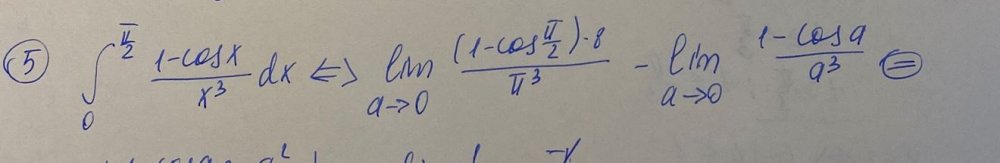 ⑤ ∫₀^{π/2} (1-cosx)/x³ dx ⇔ lim_{a→0} ((1-cos π/2)·8)/π³ - lim_{a→0} (1-cosa)/a³ ⊜